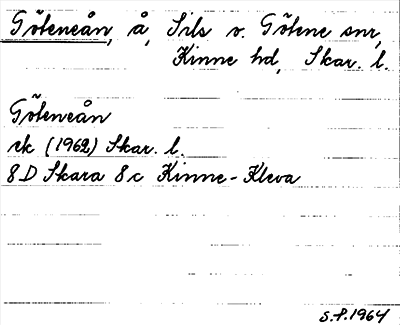 Göteneån, å, Sils v. Götene snr,
Kinne hd, Skar. l.
Göteneån
ek (1962) Skar. l.
8D Skara 8c Kinne-Kleva
S.P.1964